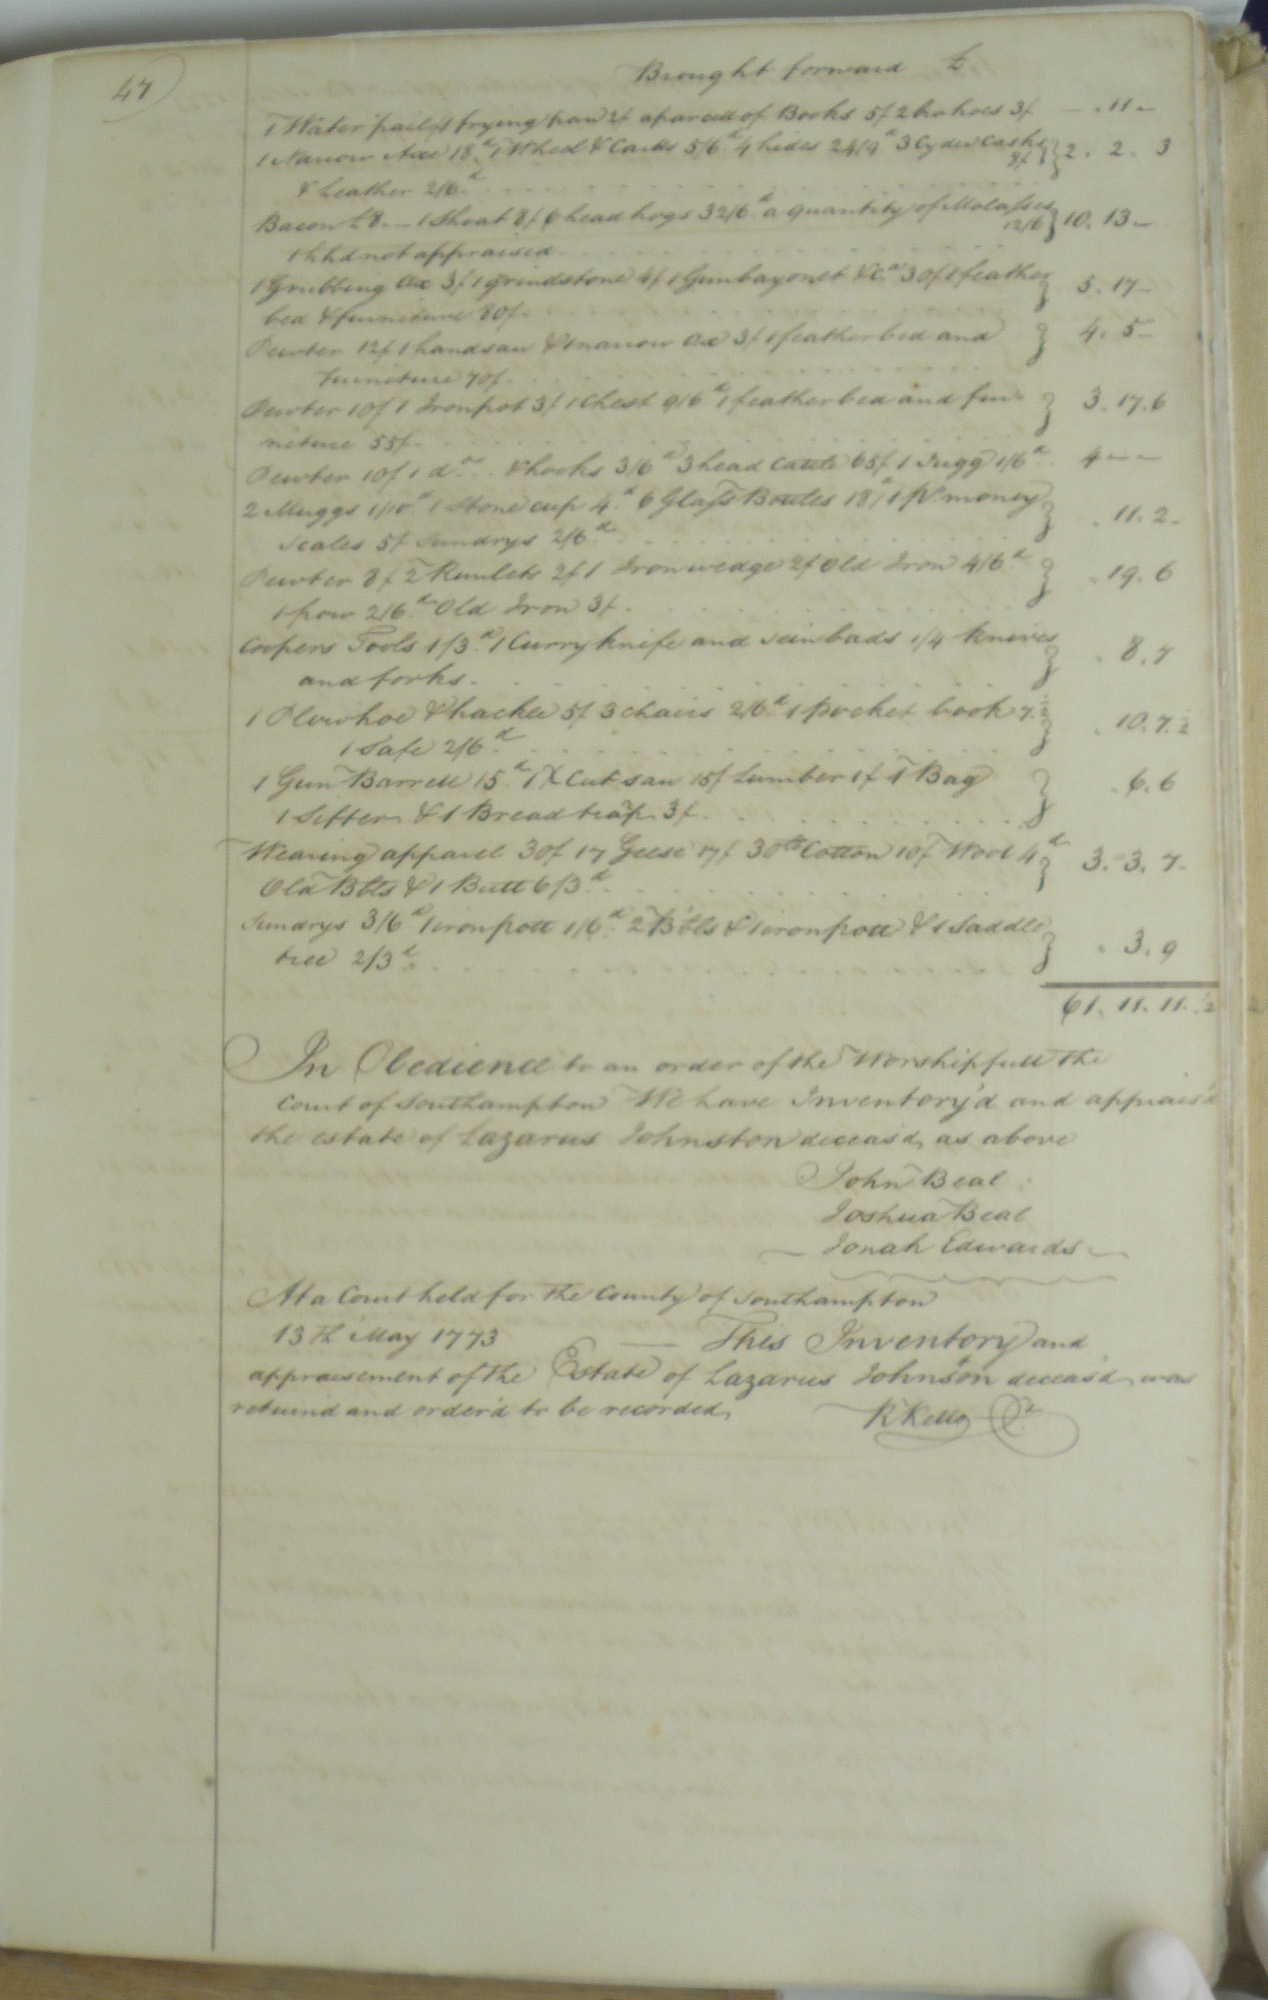 47
Brought forward £
1 Water pail 1 frying pan 2/ a parcell of Books 5/ 2 ho hoes 3/ - . 11 -
1 Narrow Axe 18d 1 Wheel & Cards 5/6d 4 hides 24/9d 3 Cyder Casks 8/ } 2 . 2 . 3
& Leather 2/6d
Bacon £8. - 1 Shoat 8/ 6 head hogs 32/6d a quantity of Molasses 12/6 } 10 . 13 -
1 hhd not appraised
1 Grubbing Ax 3/ 1 grindstone 4/ 1 Gun bayonet &Ca 30/ 1 feather } 5 . 17 -
bed & furniture 80/-
Pewter 12/ 1 handsaw & 1 narrow ax 3/ 1 feather bed and } 4 . 5 -
furniture 70/.
Pewter 10/ 1 Iron pot 3/ 1 Chest 9/6d 1 feather bed and fur- } 3 . 17 . 6
niture 55/-
Pewter 10/ 1 do & hooks 3/6d 3 head Cattle 65/ 1 Jugg 1/6d 4 - -
2 Muggs 1/10d 1 Stone cup 4d 6 Glass Bottles 18d 1 pr money } . 11 . 2 -
scales 5/ Sundrys 2/6d
Pewter 8/ 2 Runlets 2/ 1 Iron wedge 2/ Old Iron 4/6d } . 19 . 6
1 pow 2/6d Old Iron 3/.
Coopers Tools 1/3d 1 Curry knife and 1/4 knives } . 8 . 7
and forks.
1 Plowhoe & hackle 5/ 3 chairs 2/6d 1 pocket book 7 ½ } . 10 . 7 ½
1 Safe 2/6d
1 Gun Barrell 15d 1 X Cut saw 15/ Lumber 1/ 1 Bag } . 6 . 6
1 Sifter & 1 Bread 3/.
Wearing apparel 30/ 17 Geese 17/ 30 lb Cotton 10/ Wool 4d } 3 . 3 . 7 -
Old Bbls & 1 Butt 6/3d
Sundrys 3/6d 1 iron pott 1/6d 2 Bbls & 1 iron pott & 1 Saddle } . 3 . 9
tree 2/3d
61 . 11 . 11 . ½
In Obedience to an order of the Worshipfull the
Court of Southampton We have Inventory'd and apprais'd
the estate of Lazarus Johnston deceas'd, as above
John Beal
Joshua Beal
Jonah Edwards
At a Court held for the County of Southampton
13th May 1773 — This Inventory and
appraisement of the Estate of Lazarus Johnson deceas'd, was
returnd and order'd to be recorded,
R Kello Cd